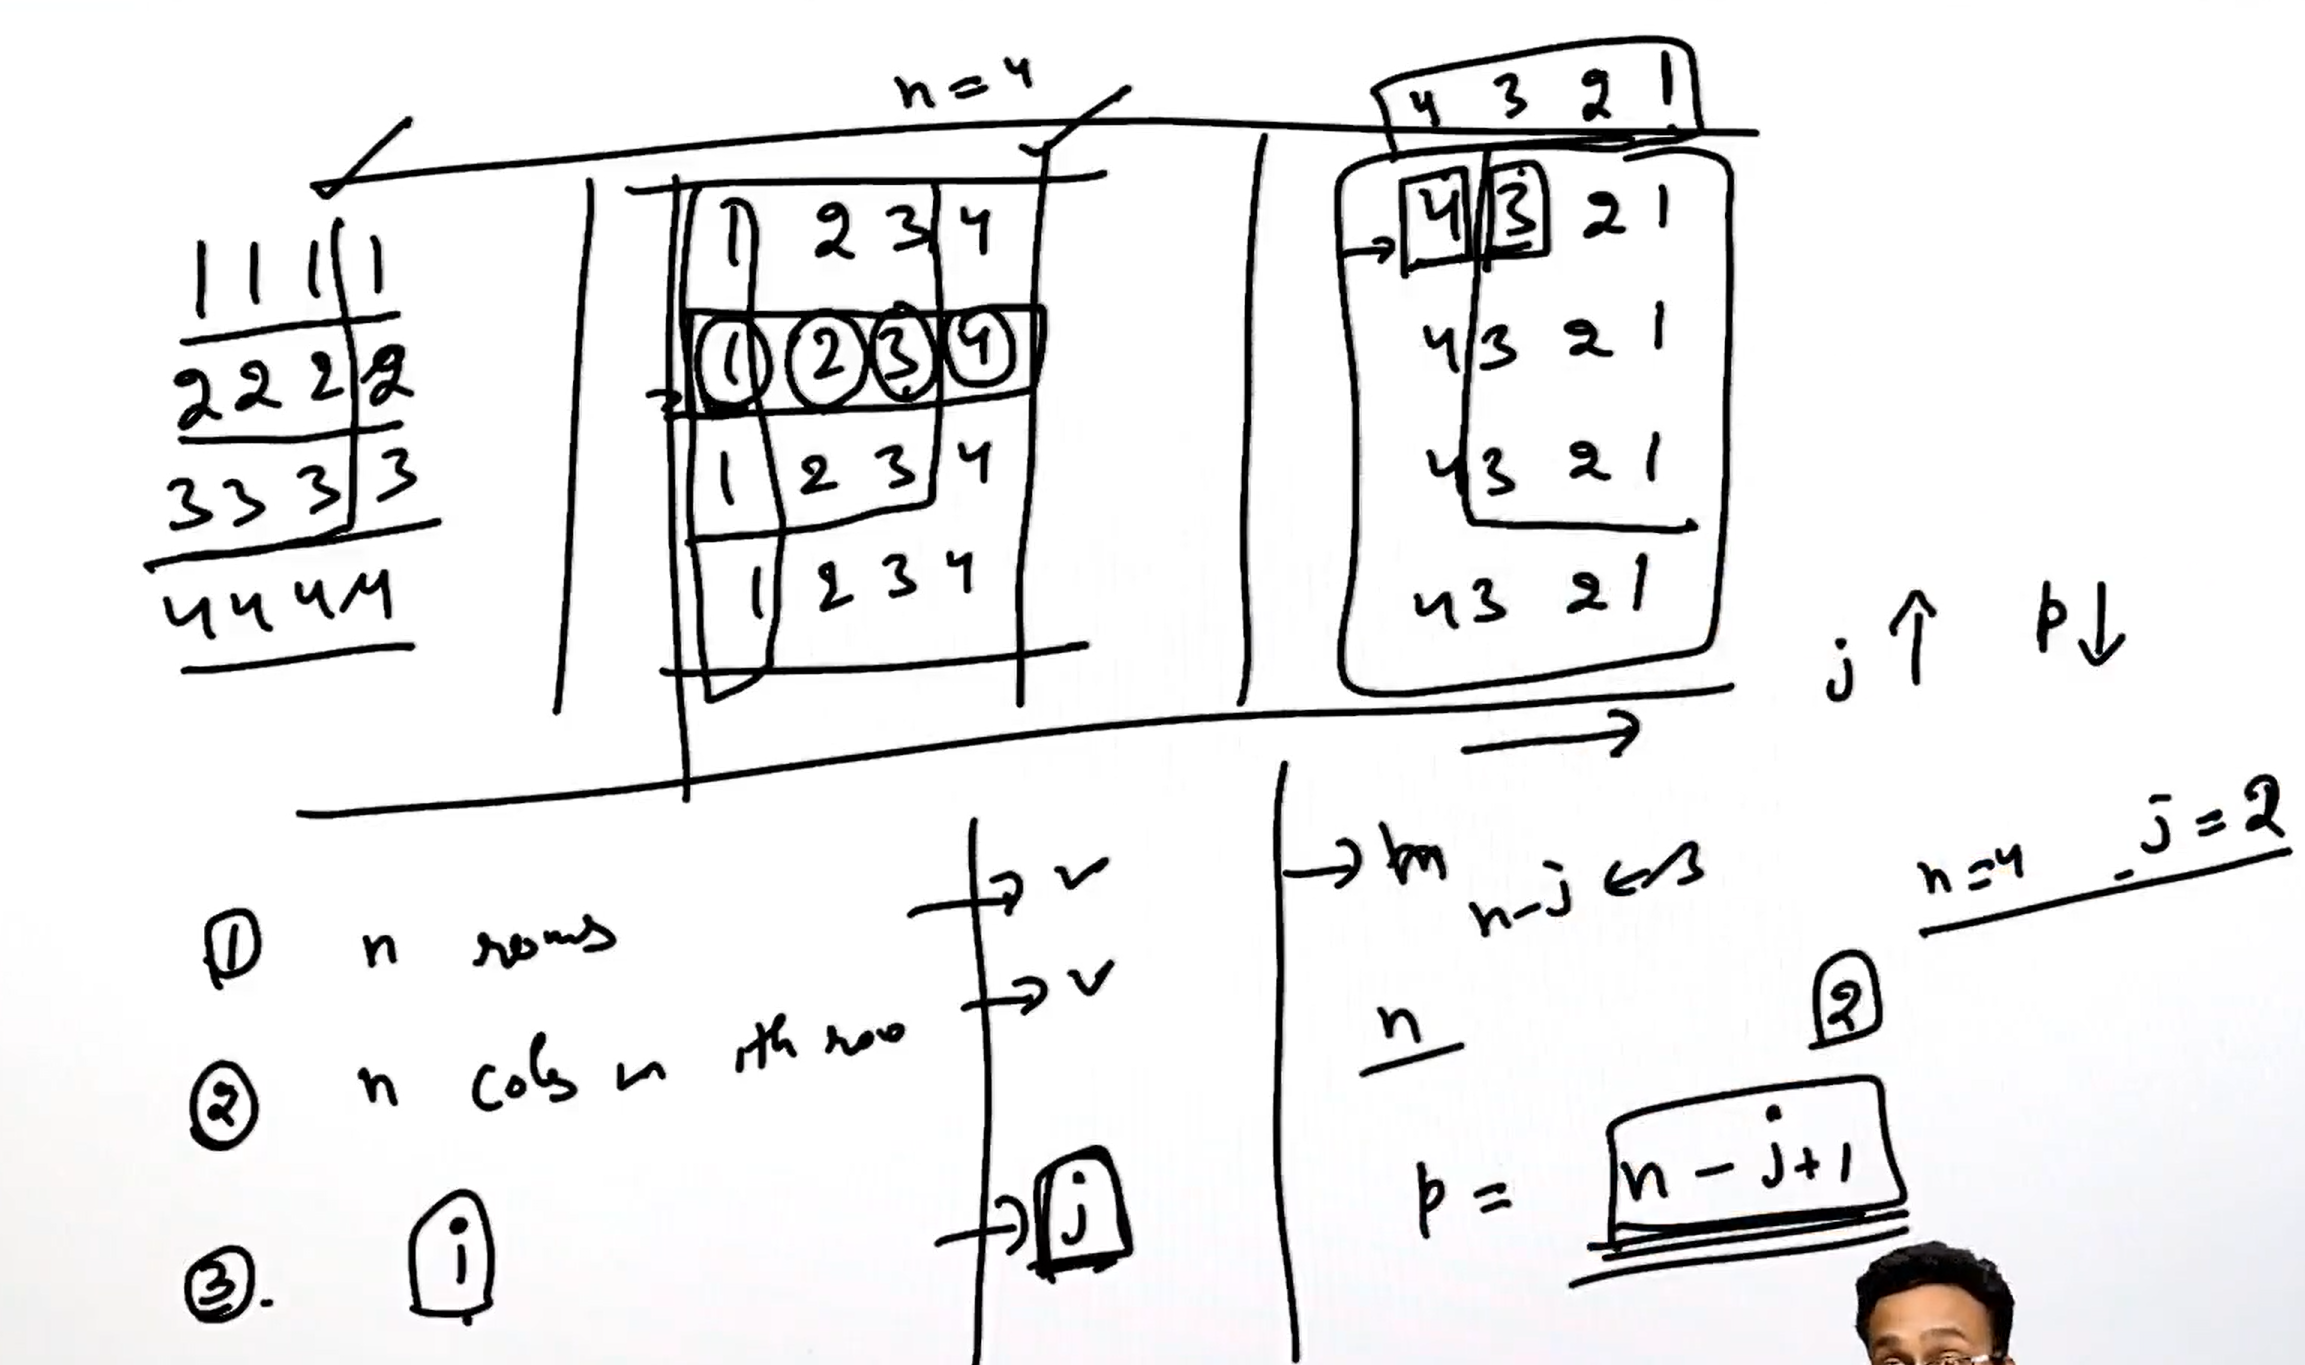 n=4
4 3 2 1
1 1 1 1
2 2 2 2
3 3 3 3
4 4 4 4
1 2 3 4
1 2 3 4
1 2 3 4
1 2 3 4
4 3 2 1
4 3 2 1
4 3 2 1
4 3 2 1
j ↑ p ↓
→
① n rows
② n cols in ith row
③. i
→ v
→ v
→ j
→
n-j
n=4 j=2
n
2
p = n - j+1